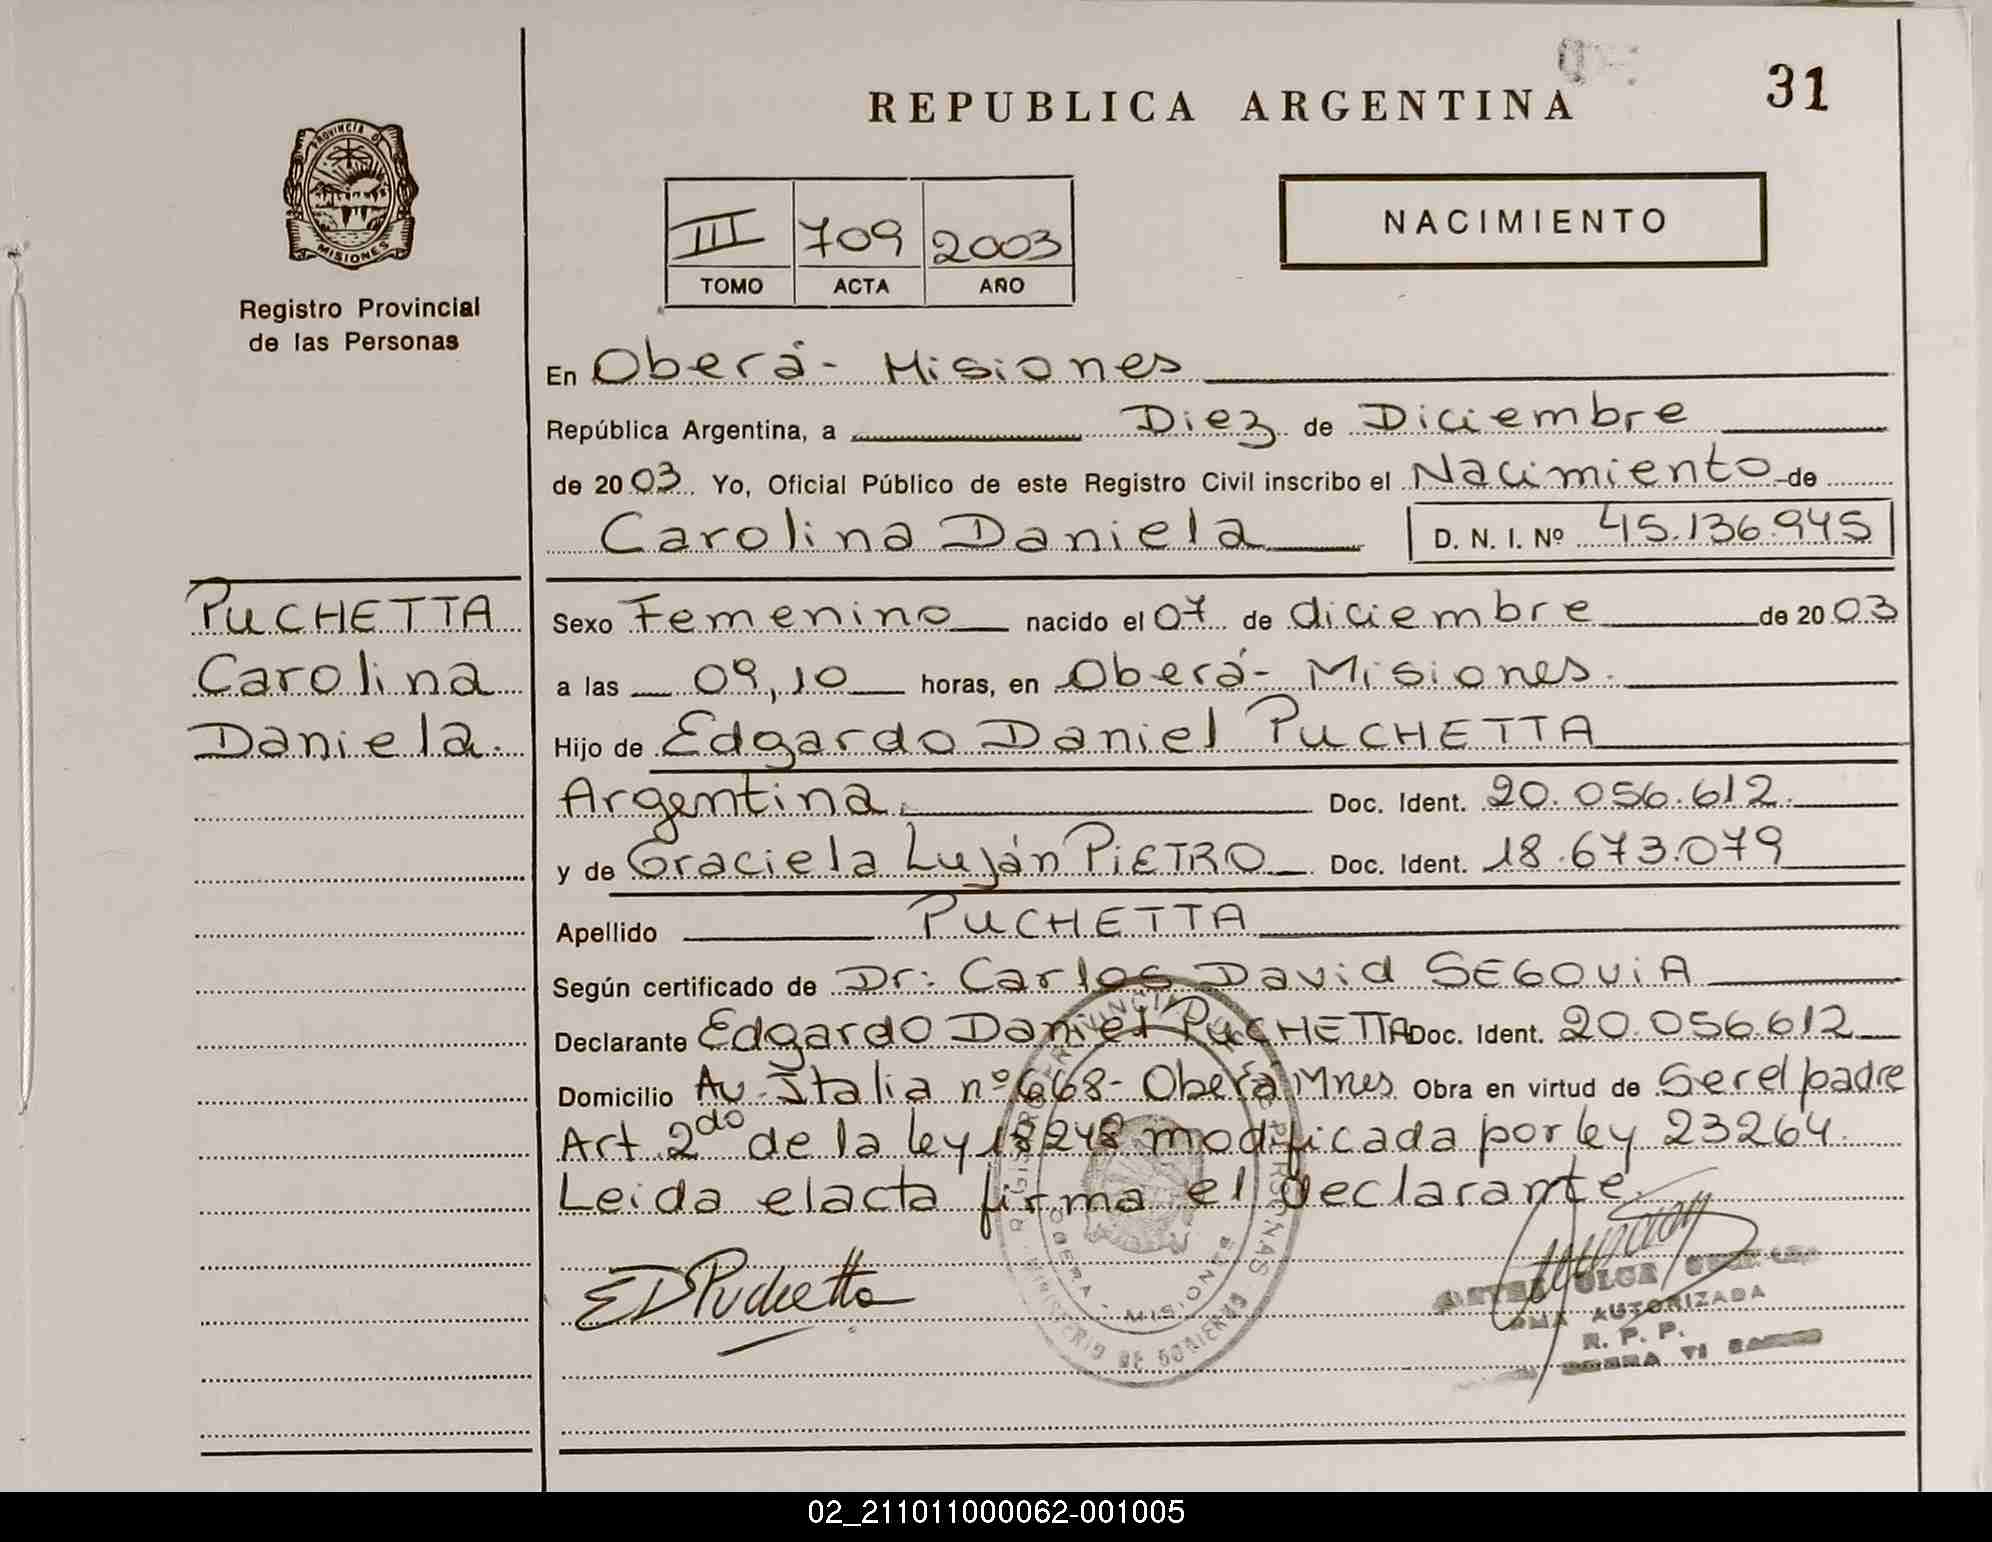 REPUBLICA ARGENTINA
31
PROVINCIA DE
MISIONES
Registro Provincial
de las Personas
III 709 2003
TOMO ACTA AÑO
NACIMIENTO
En Oberá - Misiones
República Argentina, a Diez de Diciembre
de 2003 Yo, Oficial Público de este Registro Civil inscribo el Nacimiento de
Carolina Daniela D. N. I. Nº 45.136.945
PUCHETTA
Carolina
Daniela.
Sexo Femenino nacido el 07 de diciembre de 2003
a las 09,10 horas, en Oberá - Misiones.
Hijo de Edgardo Daniel PUCHETTA
Argentina. Doc. Ident. 20.056.612.
y de Graciela Luján PIETRO Doc. Ident. 18.673.079
Apellido PUCHETTA
Según certificado de Dr: Carlos David SEGOViA
Declarante Edgardo Daniel PUCHETTA Doc. Ident. 20.056.612
Domicilio Av. Italia nº 668 - Oberá Mnes Obra en virtud de Ser el padre
Art. 2do de la ley 18248 modificada por ley 23264.
Leida el acta firma el declarante.
ED Puchetta
OBERA - MISIONES
MINISTERIO DE GOBIERNO
OLGA
AUTORIZADA
R. P. P.
02_211011000062-001005